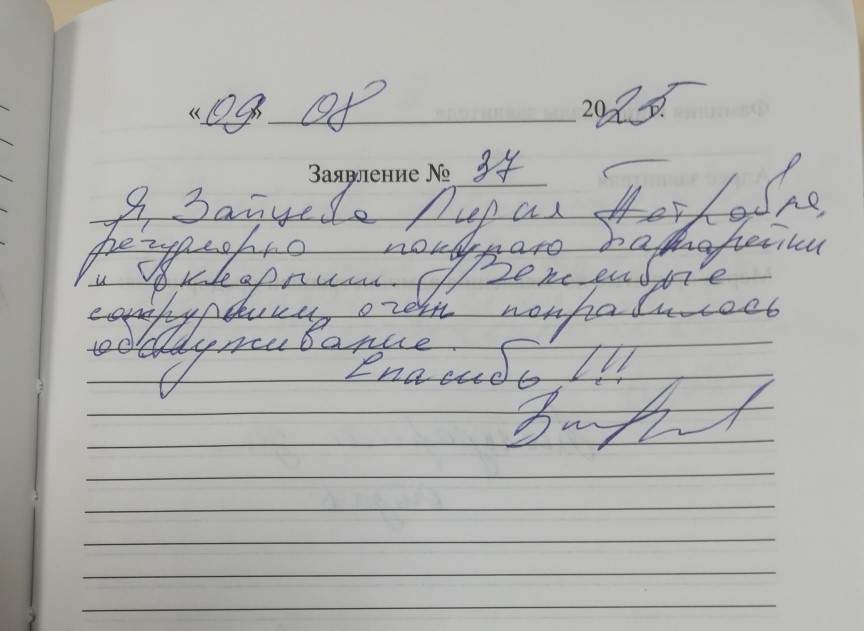 «09» 08 2025 г.
Заявление № 37
Я, Зайцева Лидия Петровна,
регулярно покупаю батарейки
и вкладыши. Вежливые
сотрудники, очень понравилось
обслуживание.
Спасибо!!!